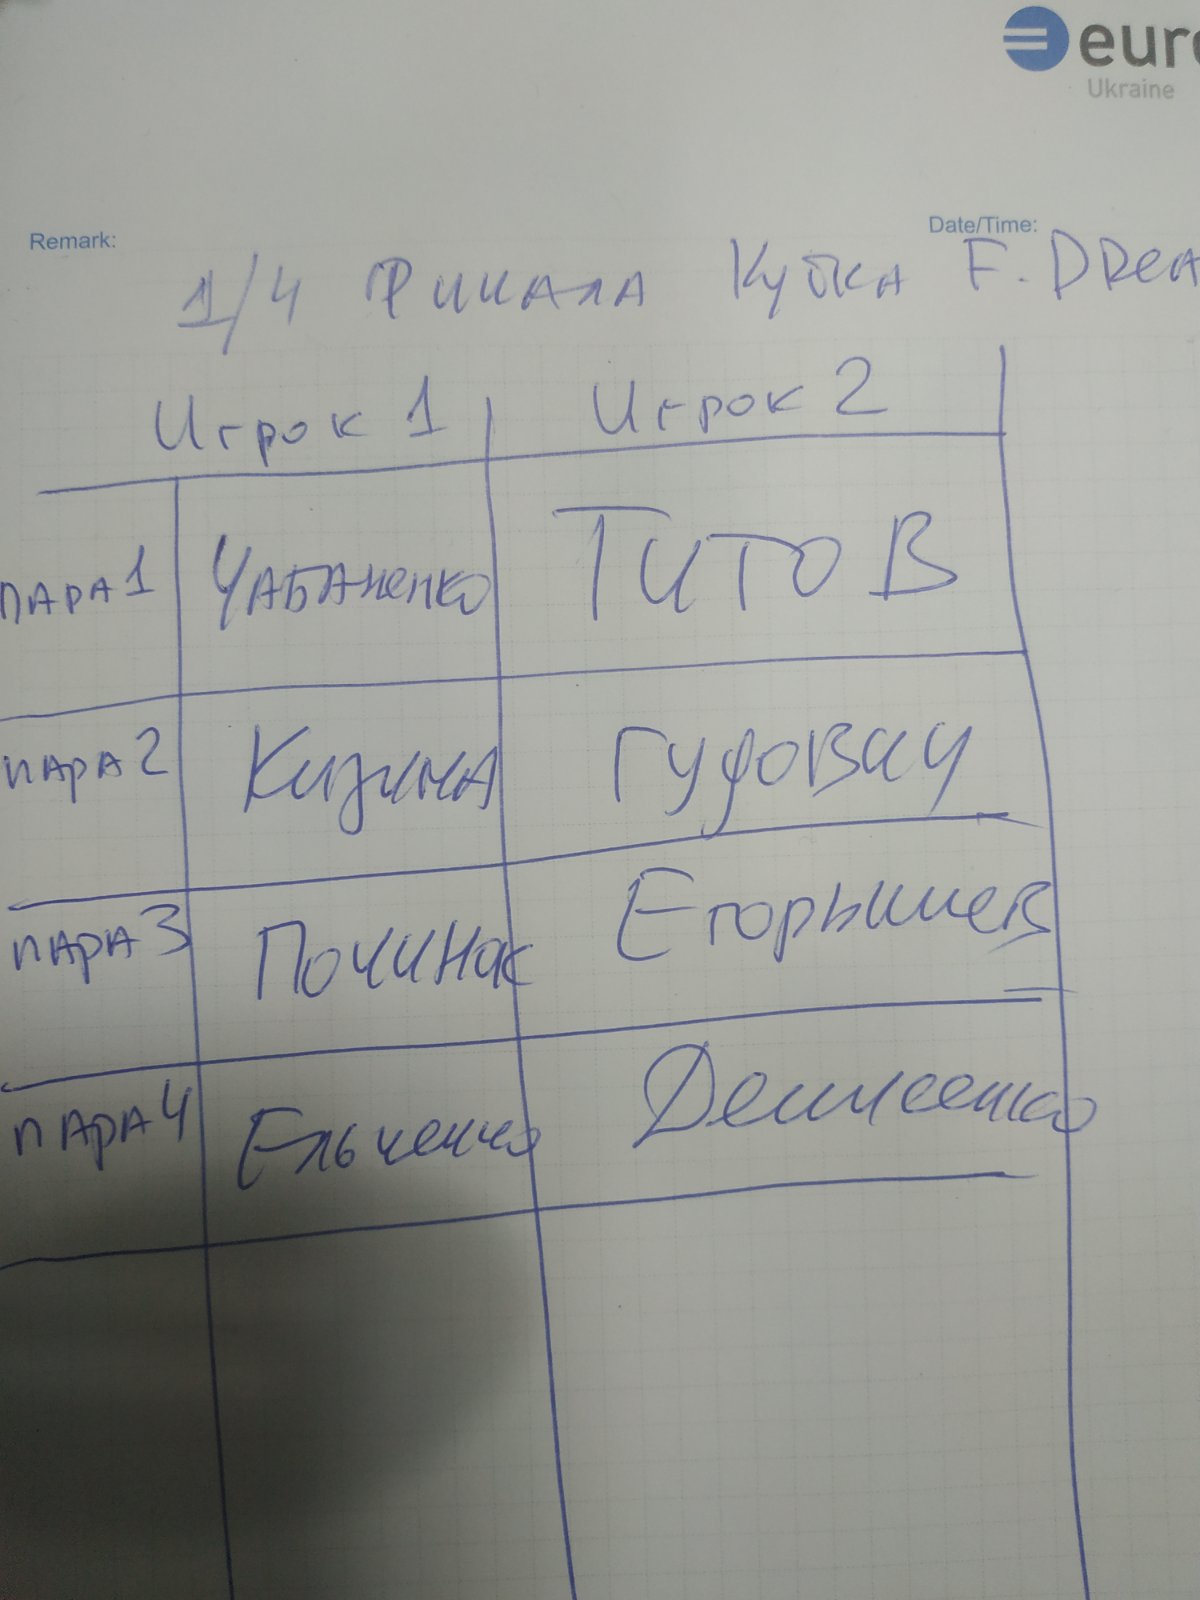 euro
Ukraine
Remark:
Date/Time:
1/4 Финала Кубка F. DREA
Игрок 1 Игрок 2
ПАРА 1 Чабаненко Титов
ПАРА 2 Кизима Гудович
ПАРА 3 Починок Егорышев
ПАРА 4 Ельченко Денисенко